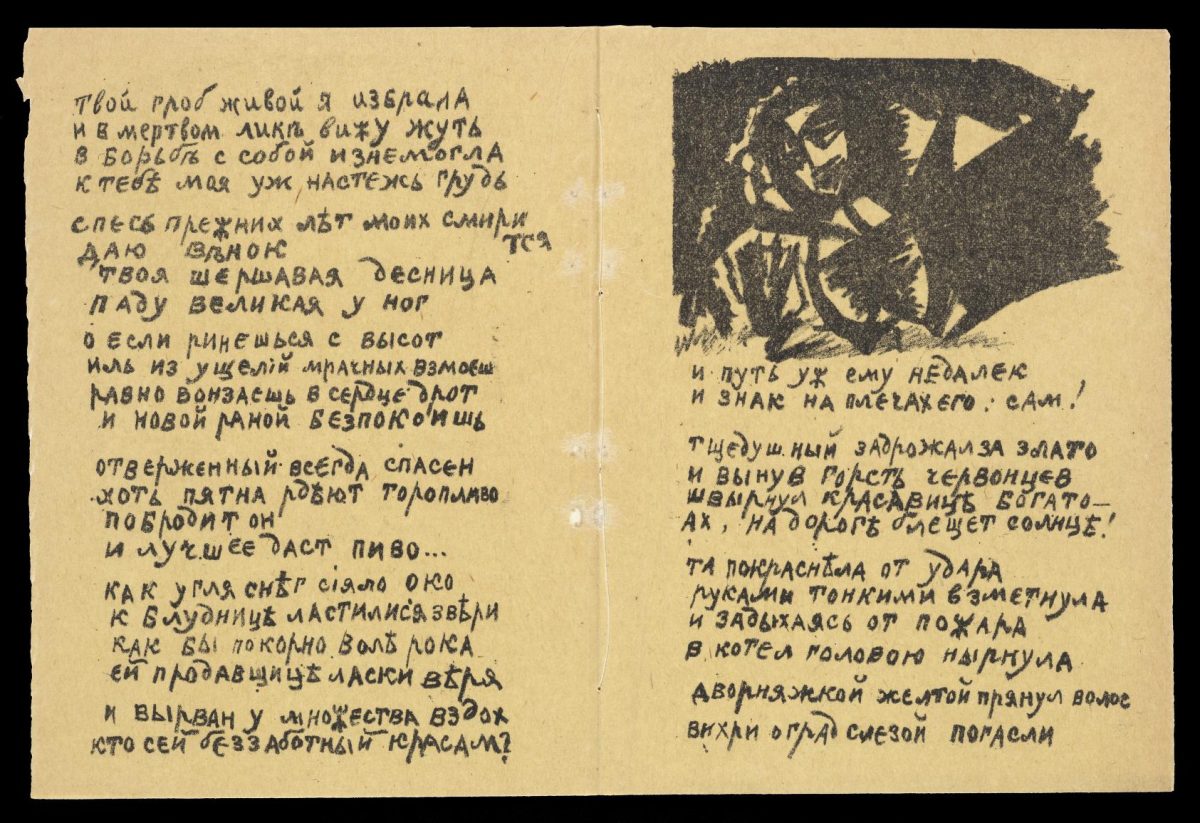 твой гроб живой я избрала
и в мертвом ликѣ вижу жуть
в борьбѣ с собой изнемогла
к тебѣ моя уж настежь грудь
спесь прежних лѣт моих смири
тся
даю вѣнок
твоя шершавая десница
паду великая у ног
о если ринешься с высот
иль из ущелій мрачных взмоеш
равно вонзаешь в сердце дрот
и новой раной безпокоишь
отверженный всегда спасен
хоть пятна рдѣют торопливо
побродит он
и лучшее даст пиво...
как угля снѣг сіяло око
к блудницѣ ластилися звѣри
как бы покорно волѣ рока
ей продавщицѣ ласки вѣря
и вырван у множества вздох
кто сей беззаботный красам?
и путь уж ему недалек
и знак на плечах его: сам!
тщедушный задрожал за злато
и вынув горсть червонцев
швырнул красавицѣ богато—
ах, на дорогѣ блещет солнце!
та покраснѣла от удара
руками тонкими взметнула
и задыхаясь от пожара
в котел головою нырнула
дворняжкой желтой прянул волос
вихри оград слезой погасли